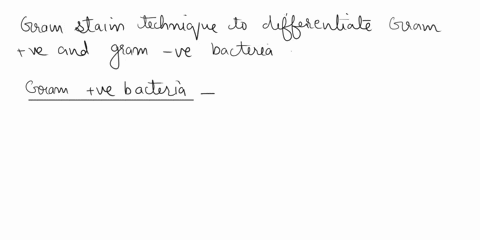 Gram stain technique to differentiate Gram
+ve and gram -ve bacteria
Gram +ve bacteria -